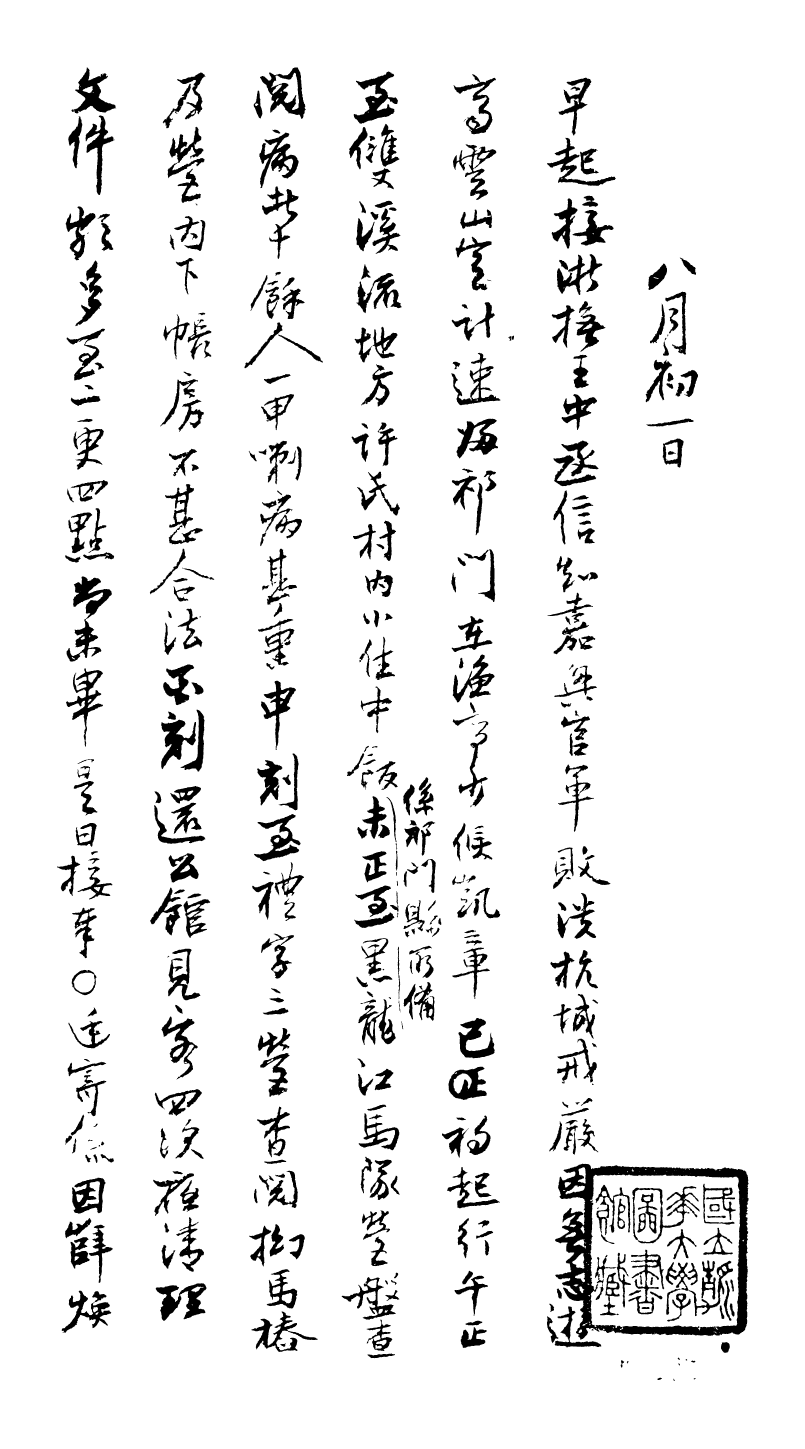 八月初一日
早起接浙撫王中丞信知嘉興官軍敗潰杭城戒嚴因無志遊
高雲山害計速歸祁門在漁亭少候凱章巳正初起行午正
至雙溪流地方許氏村內小住中飯
係祁門縣所備
未正至黑龍江馬隊營盤查
閱病者十餘人一甲喇病甚重申刻至禮字三營查閱拗馬樁
及營內下帳房不甚合法酉刻還公館見客四次旋清理
文件頗多至二更四點尚未畢是日接奉○廷寄係因薛煥
國立
大學
圖書
館藏